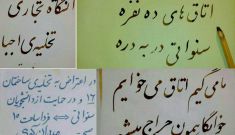 اتاق های ده نفره
سنواتی در به دره
تجاری
تخلیه‌ی اجبا
ما می گیم اتاق می خوایم
خوابگاهمون حراج میشه
در اعتراض به تخلیه‌ی ساختمان
۱۶ و در حمایت از دانشجویان
سنواتی فردا ساعت ۱۵